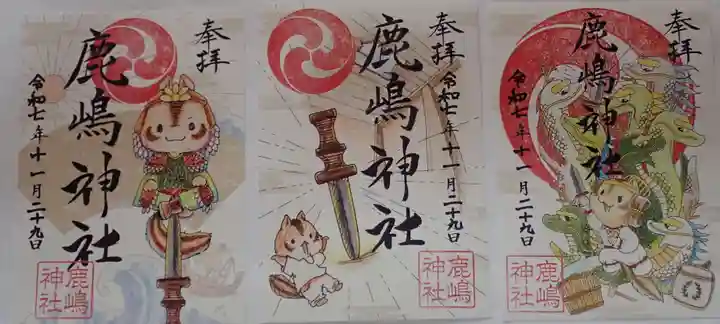 奉拝
鹿嶋神社
令和七年十一月二十九日
鹿嶋
神社
奉拝
鹿嶋神社
令和七年十一月二十九日
鹿嶋
神社
奉拝
鹿嶋神社
令和七年十一月二十九日
鹿嶋
神社